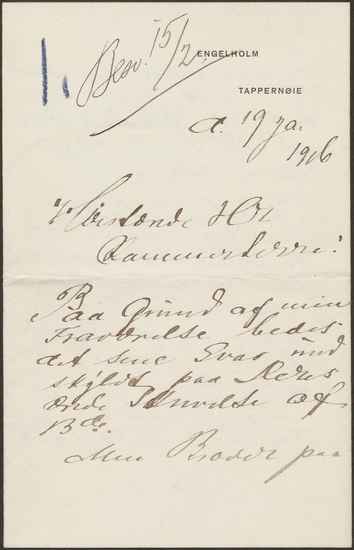 Besv. 15/2
ENGELHOLM
TAPPERNØIE
d. 19 Ja.
1916
Høistærede Hr
Kammerherre!
Paa Grund af min
Fraværelse bedes
det sene Svar und
skyldt paa Deres
ærede Skrivelse af
13 ds.
Min Broder paa